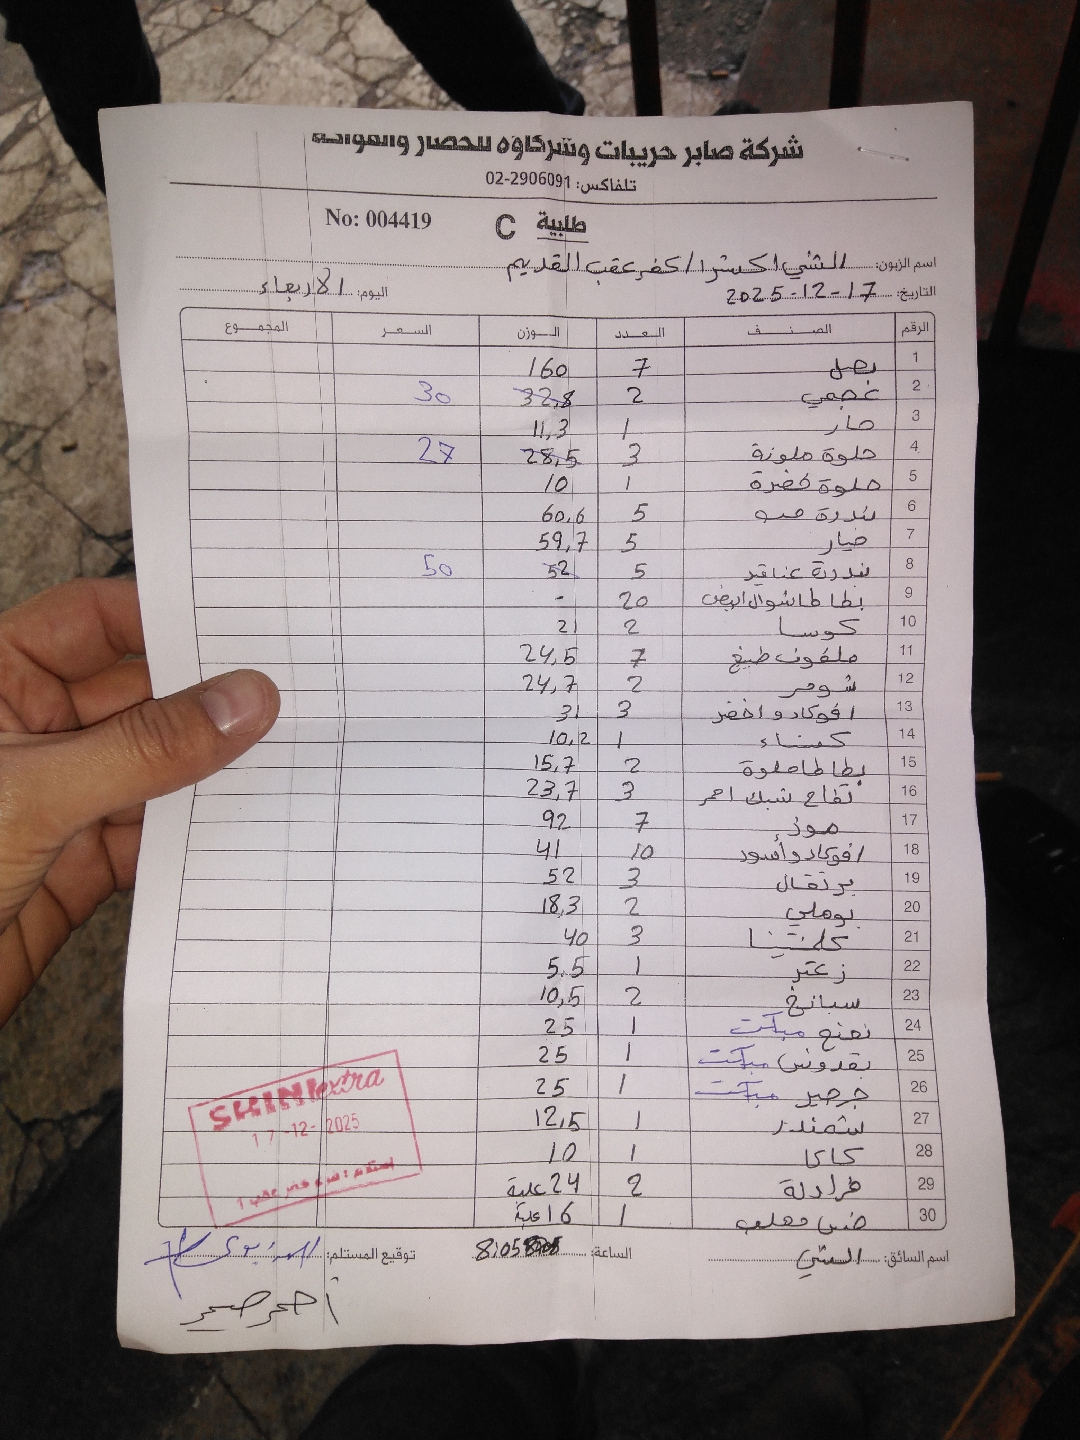 شركة صابر حريبات وشركاؤه للخضار والفواكه
تلفاكس: 02-2906091
طلبية C No: 004419
اسم الزبون: الشني اكسترا / كفر عقب القديم
التاريخ: 17-12-2025 اليوم: الأربعاء
الرقم الصنف العدد الوزن السعر المجموع
1 بصل 7 160
2 عجمي 2 32,8 30
3 حار 1 11,3
4 حلوة ملونة 3 28,5 27
5 حلوة خضرة 1 10
6 بندورة حب 5 60,6
7 خيار 5 59,7
8 بندورة عناقيد 5 52 50
9 بطاطا شوال ابيض 20 -
10 كوسا 2 21
11 ملفوف طبيخ 7 24,5
12 شومر 2 24,7
13 افوكادو اخضر 3 31
14 كستناء 1 10,2
15 بطاطا حلوة 2 15,7
16 تفاح شبك احمر 3 23,7
17 موز 7 92
18 افوكادو أسود 10 41
19 برتقال 3 52
20 بوملي 2 18,3
21 كلمنتينا 3 40
22 زعتر 1 5.5
23 سبانخ 2 10,5
24 نعنع مبكت 1 25
25 بقدونس مبكت 1 25
26 جرجير مبكت 1 25
27 شمندر 1 12,5
28 كاكا 1 10
29 فرادلة 2 24 علبة
30 خس مهلب 1 16 علبة
SHINI extra
17-12-2025
اسم السائق: الستي الساعة: 8:05 توقيع المستلم: